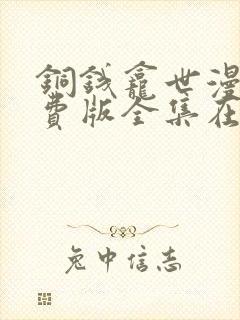 銅錢龕世漫
費版全集在
兔中信志